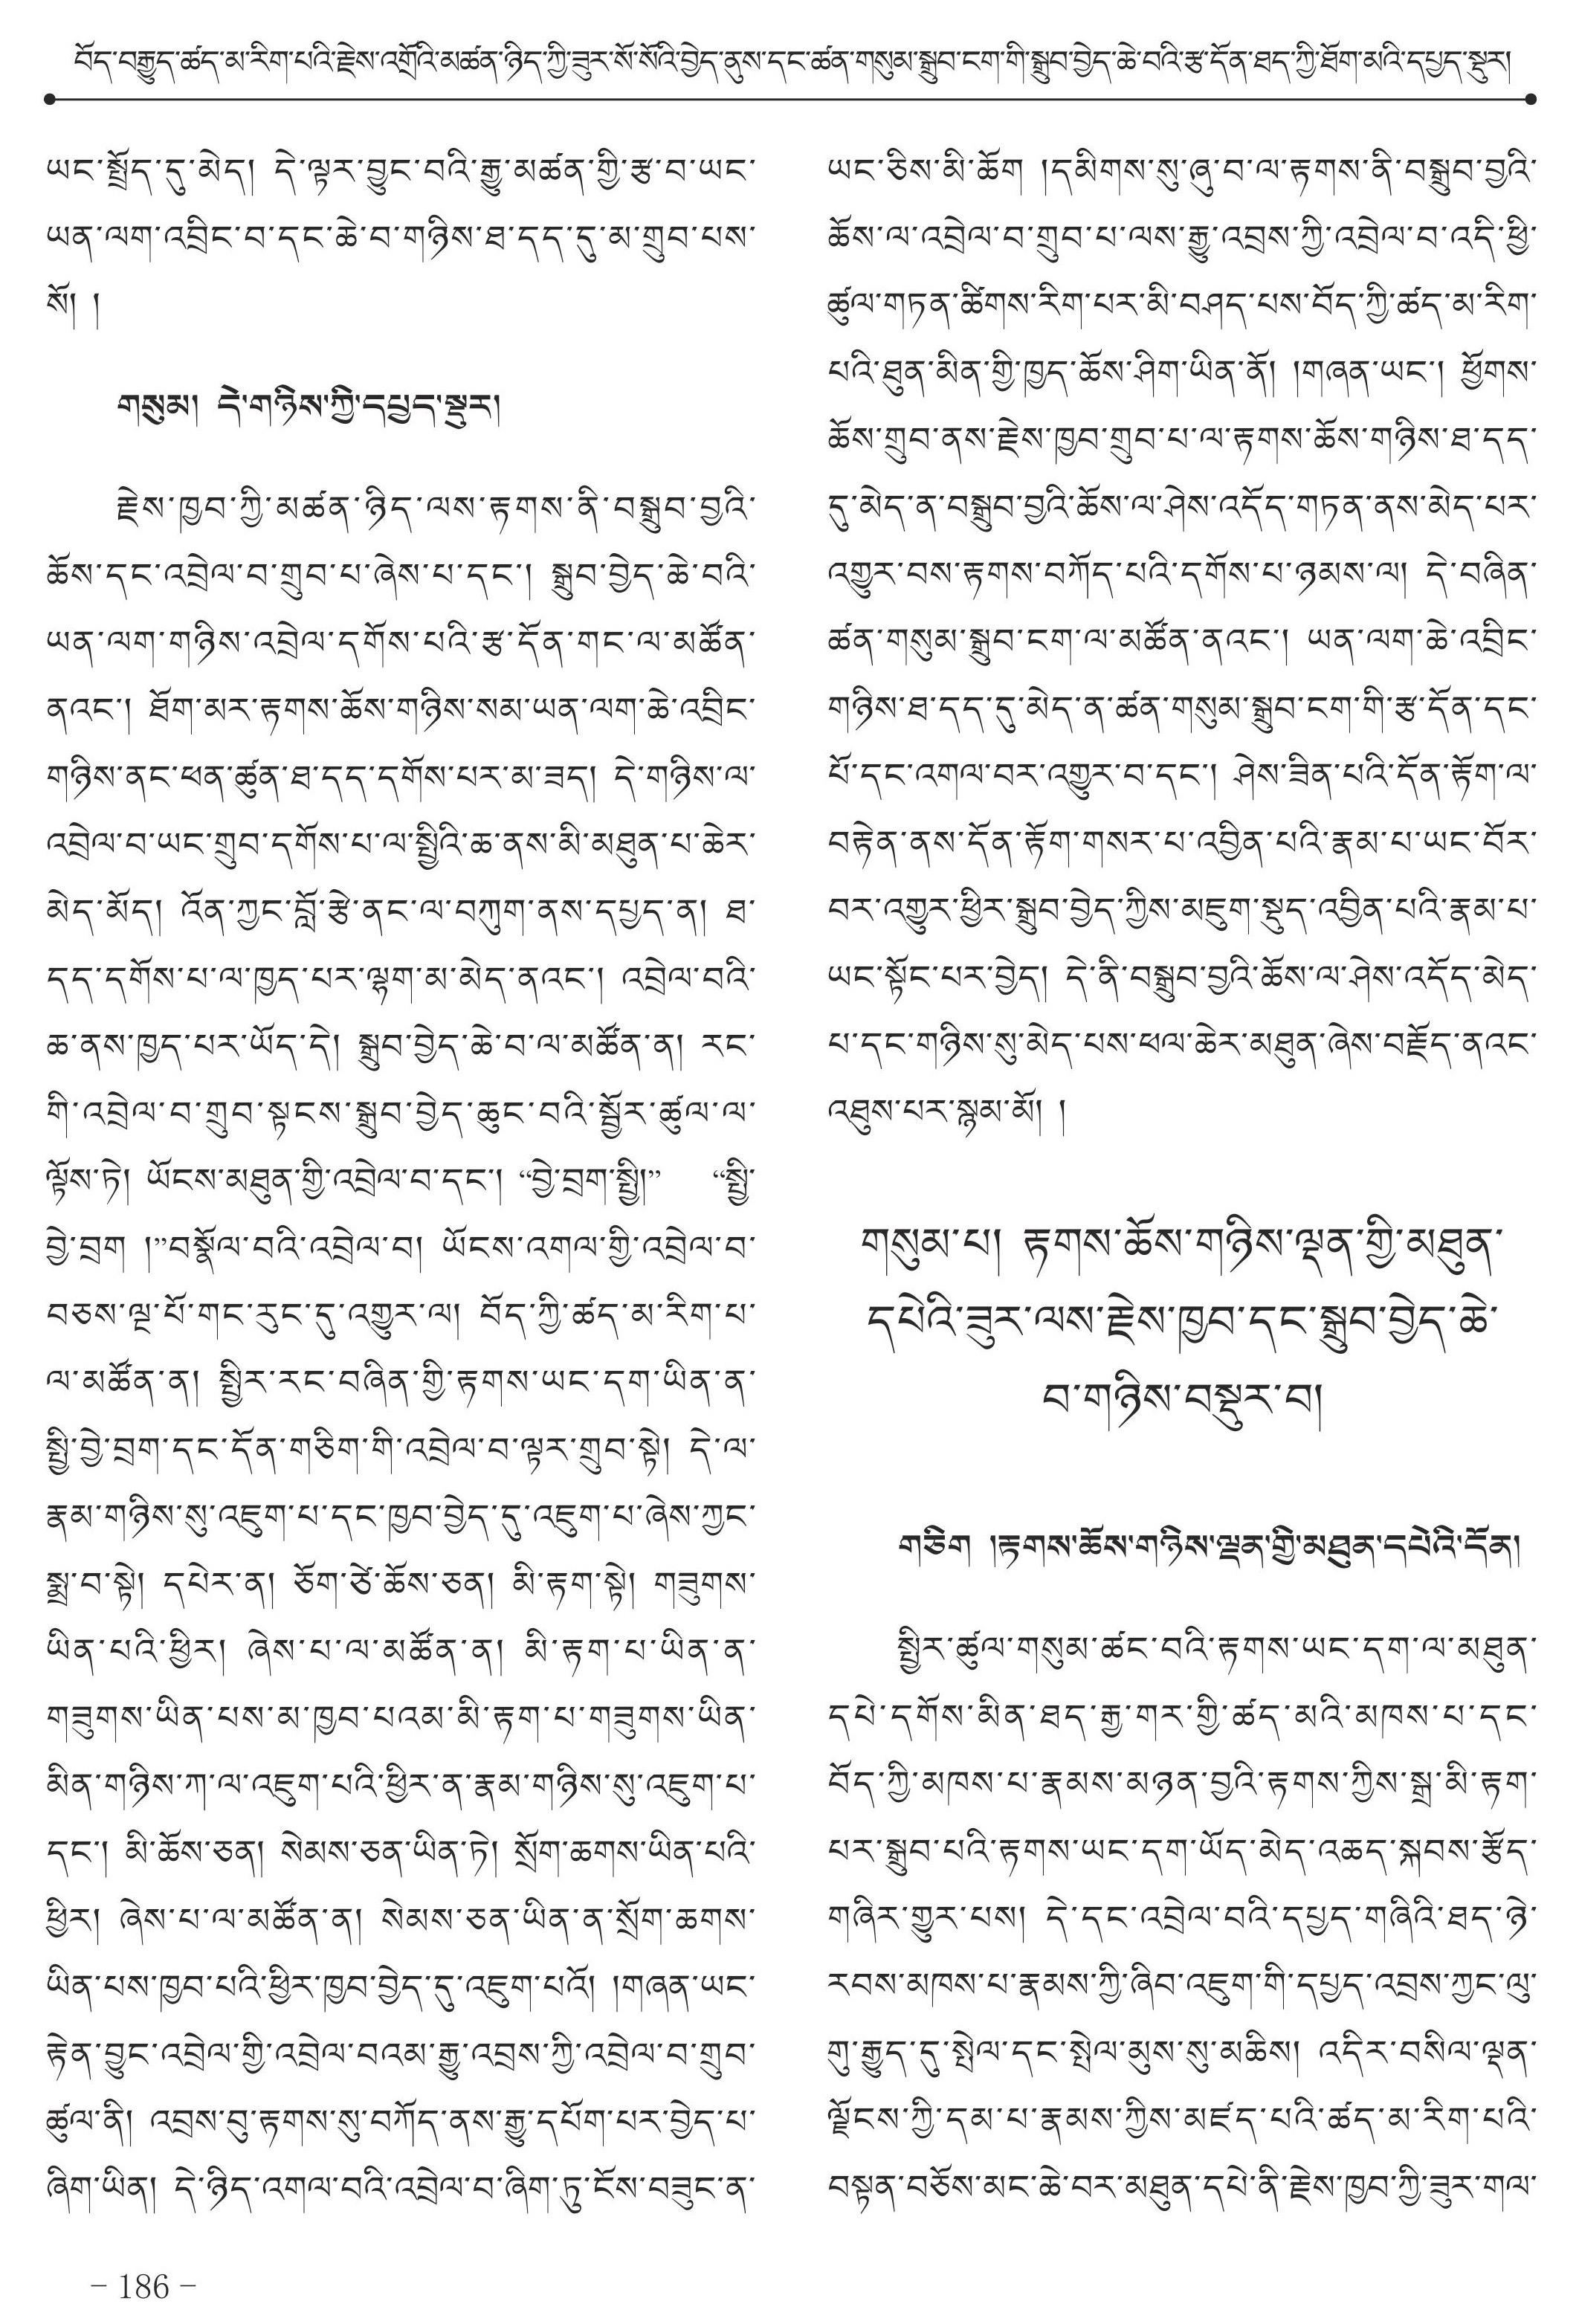 བོད་བརྒྱུད་ཚད་མ་རིག་པའི་རྗེས་འགྲོའི་མཚན་ཉིད་ཀྱི་ཟུར་སོ་སོའི་བྱེད་ནུས་དང་ཚན་གསུམ་སྒྲུབ་ངག་གི་སྒྲུབ་བྱེད་ཆེ་བའི་རྩ་དོན་ཐད་ཀྱི་ཐོག་མའི་དཔྱད་སྡུར།
ཡང་སྤྲོད་དུ་མེད། དེ་ལྟར་བྱུང་བའི་རྒྱུ་མཚན་གྱི་རྩ་བ་ཡང་
ཡན་ལག་འབྲིང་བ་དང་ཆེ་བ་གཉིས་ཐ་དད་དུ་མ་གྲུབ་པས་
སོ། །
གསུམ། དེ་གཉིས་ཀྱི་དཔྱད་སྡུར།
རྗེས་ཁྱབ་ཀྱི་མཚན་ཉིད་ལས་རྟགས་ནི་བསྒྲུབ་བྱའི་
ཆོས་དང་འབྲེལ་བ་གྲུབ་པ་ཞེས་པ་དང་། སྒྲུབ་བྱེད་ཆེ་བའི་
ཡན་ལག་གཉིས་འབྲེལ་དགོས་པའི་རྩ་དོན་གང་ལ་མཚོན་
ནའང་། ཐོག་མར་རྟགས་ཆོས་གཉིས་སམ་ཡན་ལག་ཆེ་འབྲིང་
གཉིས་ནང་ཕན་ཚུན་ཐ་དད་དགོས་པར་མ་ཟད། དེ་གཉིས་ལ་
འབྲེལ་བ་ཡང་གྲུབ་དགོས་པ་ལ་སྤྱིའི་ཆ་ནས་མི་མཐུན་པ་ཆེར་
མེད་མོད། འོན་ཀྱང་བློ་རྩེ་ནང་ལ་བཀུག་ནས་དཔྱད་ན། ཐ་
དད་དགོས་པ་ལ་ཁྱད་པར་ལྷག་མ་མེད་ནའང་། འབྲེལ་བའི་
ཆ་ནས་ཁྱད་པར་ཡོད་དེ། སྒྲུབ་བྱེད་ཆེ་བ་ལ་མཚོན་ན། རང་
གི་འབྲེལ་བ་གྲུབ་སྟངས་སྒྲུབ་བྱེད་ཆུང་བའི་སྦྱོར་ཚུལ་ལ་
ལྟོས་ཏེ། ཡོངས་མཐུན་གྱི་འབྲེལ་བ་དང་། “བྱེ་བྲག་སྤྱི།” “སྤྱི་
བྱེ་བྲག །”བསྣོལ་བའི་འབྲེལ་བ། ཡོངས་འགལ་གྱི་འབྲེལ་བ་
བཅས་ལྔ་པོ་གང་རུང་དུ་འགྱུར་ལ། བོད་ཀྱི་ཚད་མ་རིག་པ་
ལ་མཚོན་ན། སྤྱིར་རང་བཞིན་གྱི་རྟགས་ཡང་དག་ཡིན་ན་
སྤྱི་བྱེ་བྲག་དང་དོན་གཅིག་གི་འབྲེལ་བ་ལྟར་གྲུབ་སྟེ། དེ་ལ་
རྣམ་གཉིས་སུ་འཇུག་པ་དང་ཁྱབ་བྱེད་དུ་འཇུག་པ་ཞེས་ཀྱང་
སྨྲ་བ་སྟེ། དཔེར་ན། ཅོག་ཙེ་ཆོས་ཅན། མི་རྟག་སྟེ། གཟུགས་
ཡིན་པའི་ཕྱིར། ཞེས་པ་ལ་མཚོན་ན། མི་རྟག་པ་ཡིན་ན་
གཟུགས་ཡིན་པས་མ་ཁྱབ་པའམ་མི་རྟག་པ་གཟུགས་ཡིན་
མིན་གཉིས་ཀ་ལ་འཇུག་པའི་ཕྱིར་ན་རྣམ་གཉིས་སུ་འཇུག་པ་
དང་། མི་ཆོས་ཅན། སེམས་ཅན་ཡིན་ཏེ། སྲོག་ཆགས་ཡིན་པའི་
ཕྱིར། ཞེས་པ་ལ་མཚོན་ན། སེམས་ཅན་ཡིན་ན་སྲོག་ཆགས་
ཡིན་པས་ཁྱབ་པའི་ཕྱིར་ཁྱབ་བྱེད་དུ་འཇུག་པའོ། །གཞན་ཡང་
རྟེན་བྱུང་འབྲེལ་གྱི་འབྲེལ་བའམ་རྒྱུ་འབྲས་ཀྱི་འབྲེལ་བ་གྲུབ་
ཚུལ་ནི། འབྲས་བུ་རྟགས་སུ་བཀོད་ནས་རྒྱུ་དཔོག་པར་བྱེད་པ་
ཞིག་ཡིན། དེ་ཉིད་འགལ་བའི་འབྲེལ་བ་ཞིག་ཏུ་ངོས་བཟུང་ན་
ཡང་ཅིས་མི་ཆོག །དམིགས་སུ་ཞུ་བ་ལ་རྟགས་ནི་བསྒྲུབ་བྱའི་
ཆོས་ལ་འབྲེལ་བ་གྲུབ་པ་ལས་རྒྱུ་འབྲས་ཀྱི་འབྲེལ་བ་འདི་ཕྱི་
ཚུལ་གཏན་ཚིགས་རིག་པར་མི་བཤད་པས་བོད་ཀྱི་ཚད་མ་རིག་
པའི་ཐུན་མིན་གྱི་ཁྱད་ཆོས་ཤིག་ཡིན་ནོ། །གཞན་ཡང་། ཕྱོགས་
ཆོས་གྲུབ་ནས་རྗེས་ཁྱབ་གྲུབ་པ་ལ་རྟགས་ཆོས་གཉིས་ཐ་དད་
དུ་མེད་ན་བསྒྲུབ་བྱའི་ཆོས་ལ་ཤེས་འདོད་གཏན་ནས་མེད་པར་
འགྱུར་བས་རྟགས་བཀོད་པའི་དགོས་པ་ཉམས་ལ། དེ་བཞིན་
ཚན་གསུམ་སྒྲུབ་ངག་ལ་མཚོན་ནའང་། ཡན་ལག་ཆེ་འབྲིང་
གཉིས་ཐ་དད་དུ་མེད་ན་ཚན་གསུམ་སྒྲུབ་ངག་གི་རྩ་དོན་དང་
པོ་དང་འགལ་བར་འགྱུར་བ་དང་། ཤེས་ཟིན་པའི་དོན་རྟོག་ལ་
བརྟེན་ནས་དོན་རྟོག་གསར་པ་འབྱིན་པའི་རྣམ་པ་ཡང་བོར་
བར་འགྱུར་ཕྱིར་སྒྲུབ་བྱེད་ཀྱིས་མཇུག་སྡུད་འབྱིན་པའི་རྣམ་པ་
ཡང་སྟོང་པར་བྱེད། དེ་ནི་བསྒྲུབ་བྱའི་ཆོས་ལ་ཤེས་འདོད་མེད་
པ་དང་གཉིས་སུ་མེད་པས་ཕལ་ཆེར་མཐུན་ཞེས་བརྗོད་ནའང་
འཐུས་པར་སྙམ་མོ། །
གསུམ་པ། རྟགས་ཆོས་གཉིས་ལྡན་གྱི་མཐུན་
དཔེའི་ཟུར་ལས་རྗེས་ཁྱབ་དང་སྒྲུབ་བྱེད་ཆེ་
བ་གཉིས་བསྡུར་བ།
གཅིག །རྟགས་ཆོས་གཉིས་ལྡན་གྱི་མཐུན་དཔེའི་དོན།
སྤྱིར་ཚུལ་གསུམ་ཚང་བའི་རྟགས་ཡང་དག་ལ་མཐུན་
དཔེ་དགོས་མིན་ཐད་རྒྱ་གར་གྱི་ཚད་མའི་མཁས་པ་དང་
བོད་ཀྱི་མཁས་པ་རྣམས་མཉན་བྱའི་རྟགས་ཀྱིས་སྒྲ་མི་རྟག་
པར་སྒྲུབ་པའི་རྟགས་ཡང་དག་ཡོད་མེད་འཆད་སྐབས་རྩོད་
གཞིར་གྱུར་པས། དེ་དང་འབྲེལ་བའི་དཔྱད་གཞིའི་ཐད་ཉེ་
རབས་མཁས་པ་རྣམས་ཀྱི་ཞིབ་འཇུག་གི་དཔྱད་འབྲས་ཀྱང་ལུ་
གུ་རྒྱུད་དུ་སྤེལ་དང་སྤེལ་མུས་སུ་མཆིས། འདིར་བསིལ་ལྡན་
ལྗོངས་ཀྱི་དམ་པ་རྣམས་ཀྱིས་མཛད་པའི་ཚད་མ་རིག་པའི་
བསྟན་བཅོས་མང་ཆེ་བར་མཐུན་དཔེ་ནི་རྗེས་ཁྱབ་ཀྱི་ཟུར་གལ་
– 186 –